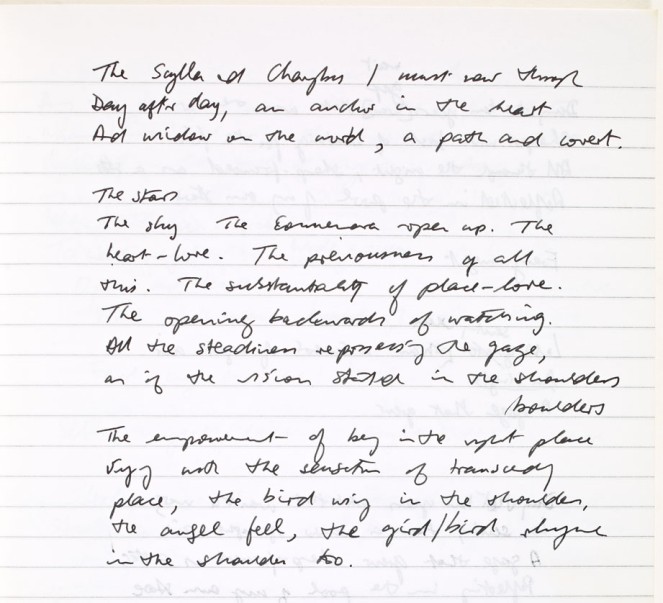 The Scylla and Charybdis I must row through
Day after day, an anchor in the heart
And window on the world, a path and covert.
The stars
The sky The Eonnenara open up. The
heart-love. The previousness of all
this. The substantiality of place-love.
The opening backwards of watching.
All the steadiness repossessing the gaze,
as if the vision started in the shoulders
/boulders
The empowerment of being in the right place
vying with the sensation of transcending
place, the bird wing in the shoulder,
the angel feel, the gird/bird rhyme
in the shoulder too.